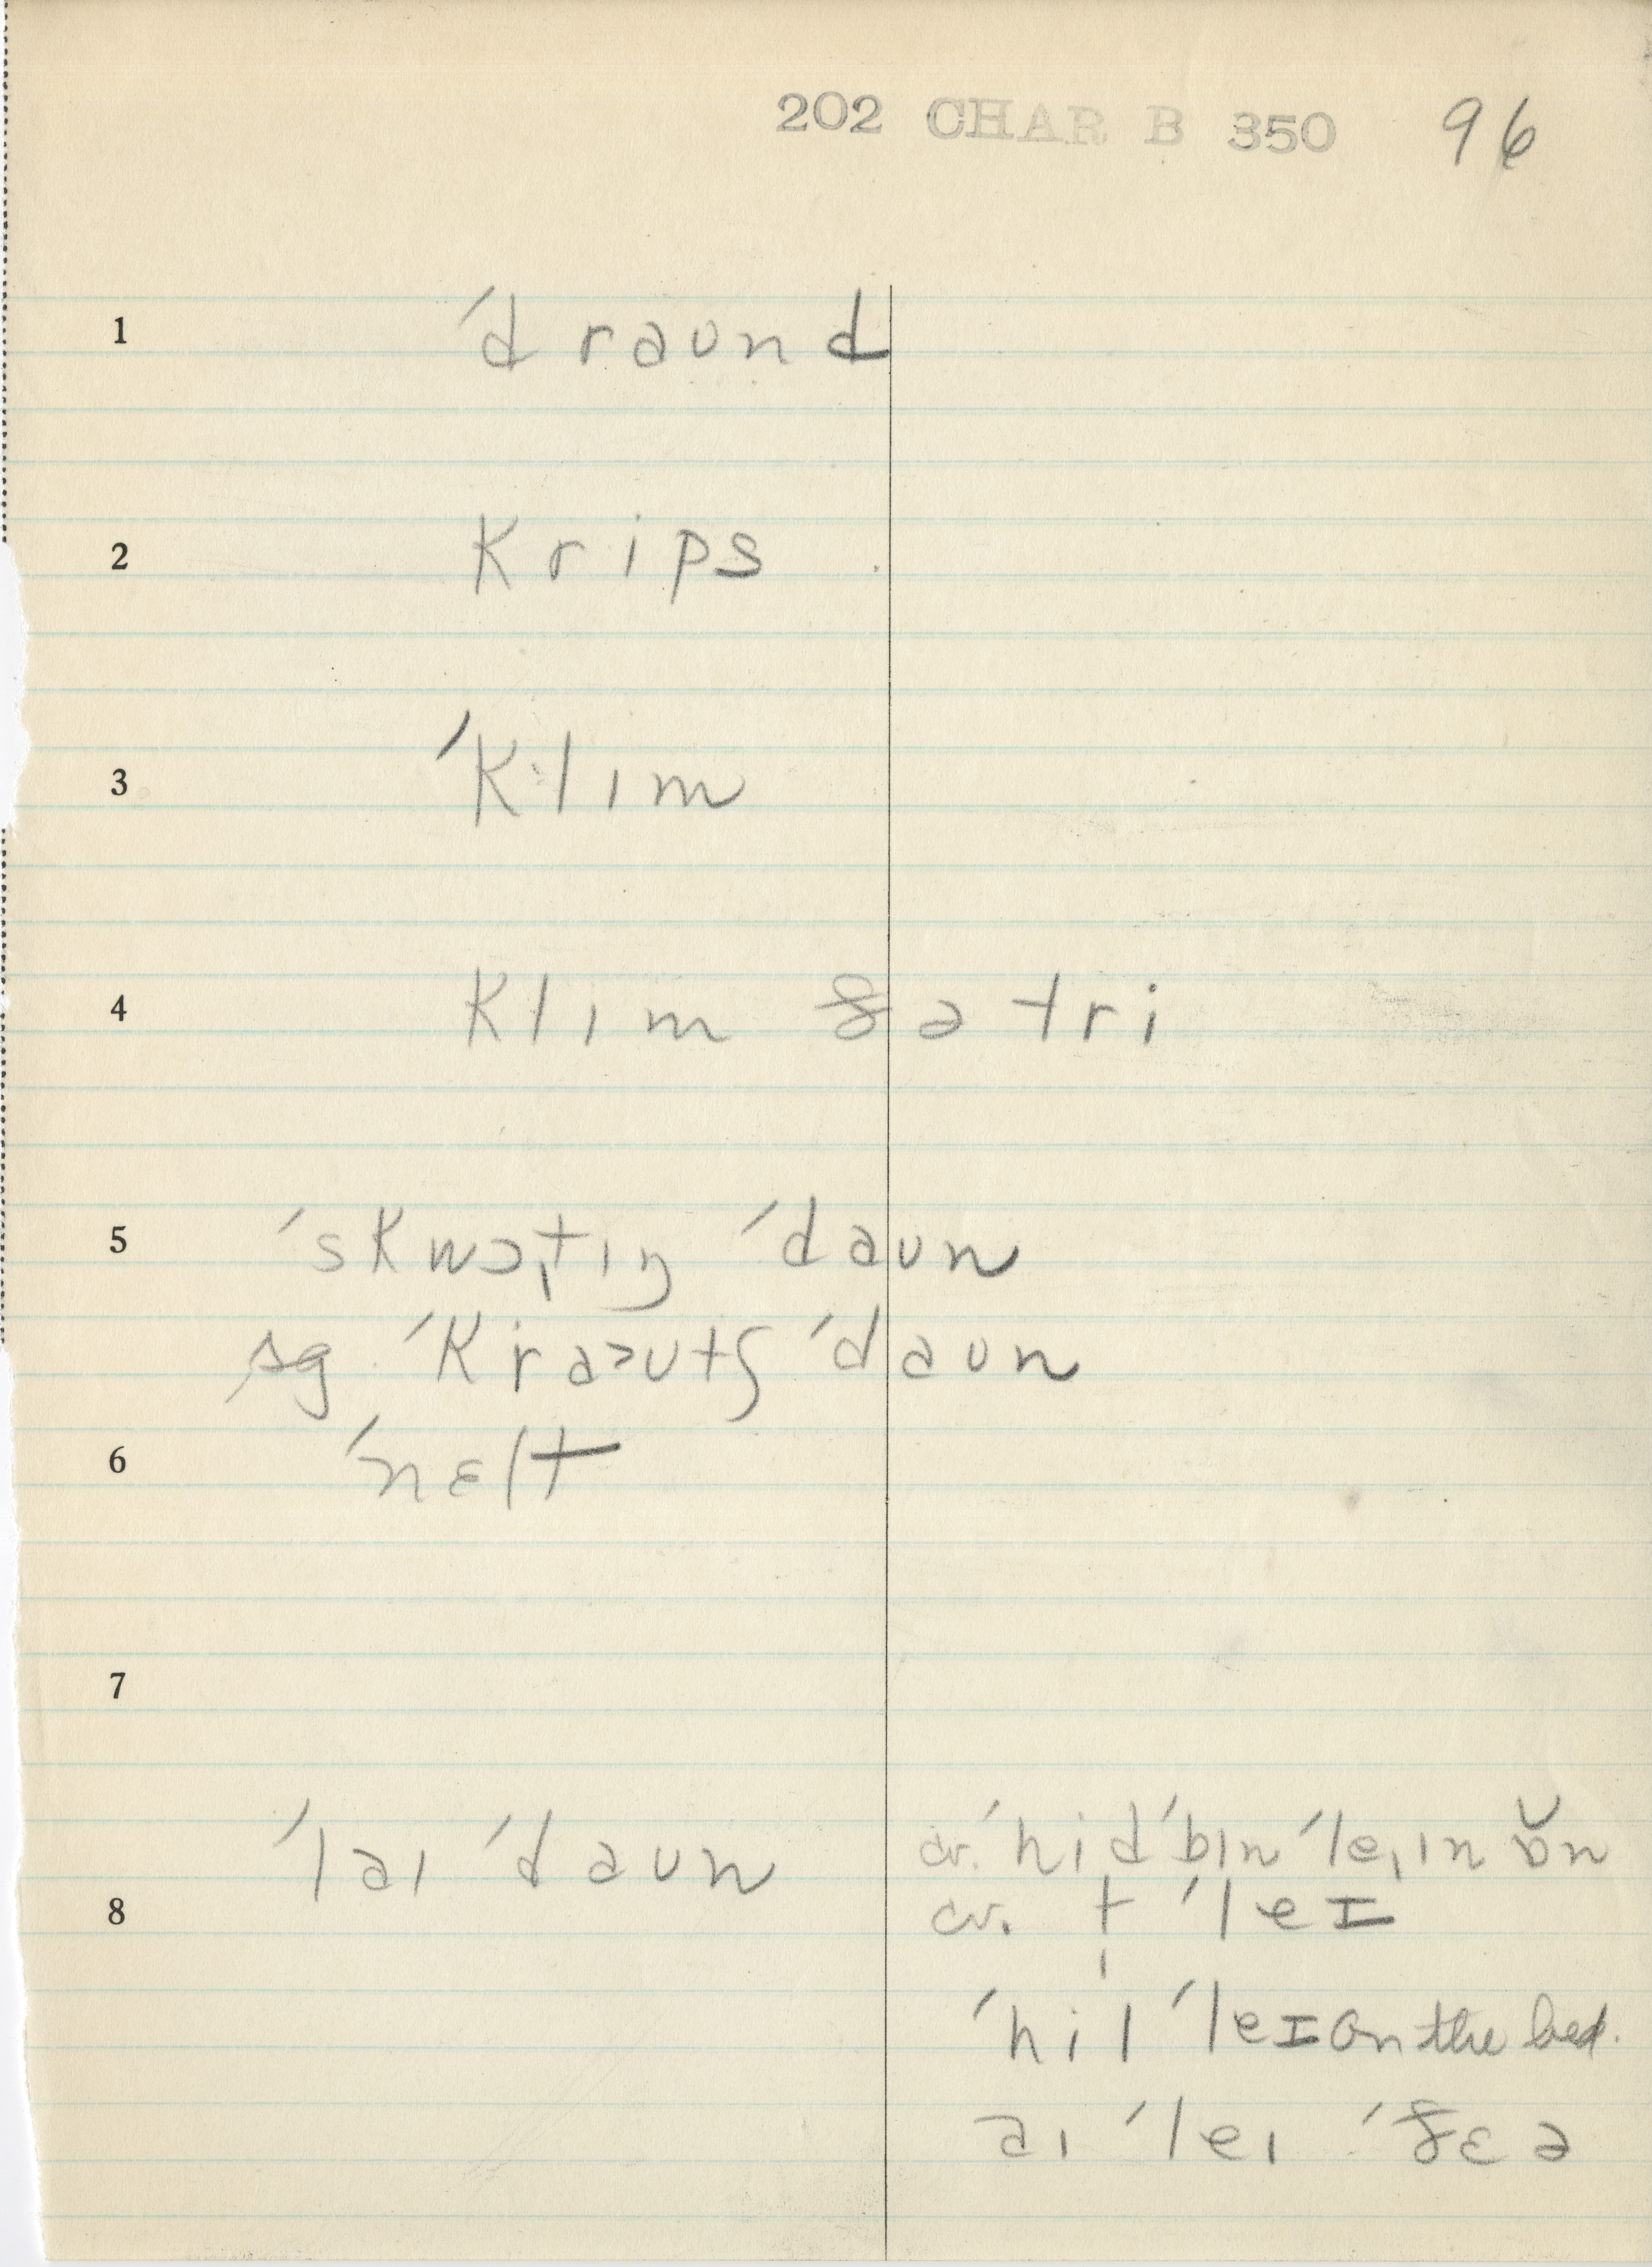 202 CHAR B 350 96
1 ˈdraʊnd
2 krips
3 ˈklɪm
4 klɪm ðə tri
5 ˈskwɔtɪŋ ˈdaʊn
sg ˈkraʊtʃ ˈdaʊn
6 ˈnɛlt
7
ˈlaɪ ˈdaʊn cv. ˈhid ˈbɪn ˈleɪɪn ɒ̆n
8 cv. t ˈleɪ
ˈhil ˈleɪ on the bed.
aɪ ˈleɪ ˈðɛə